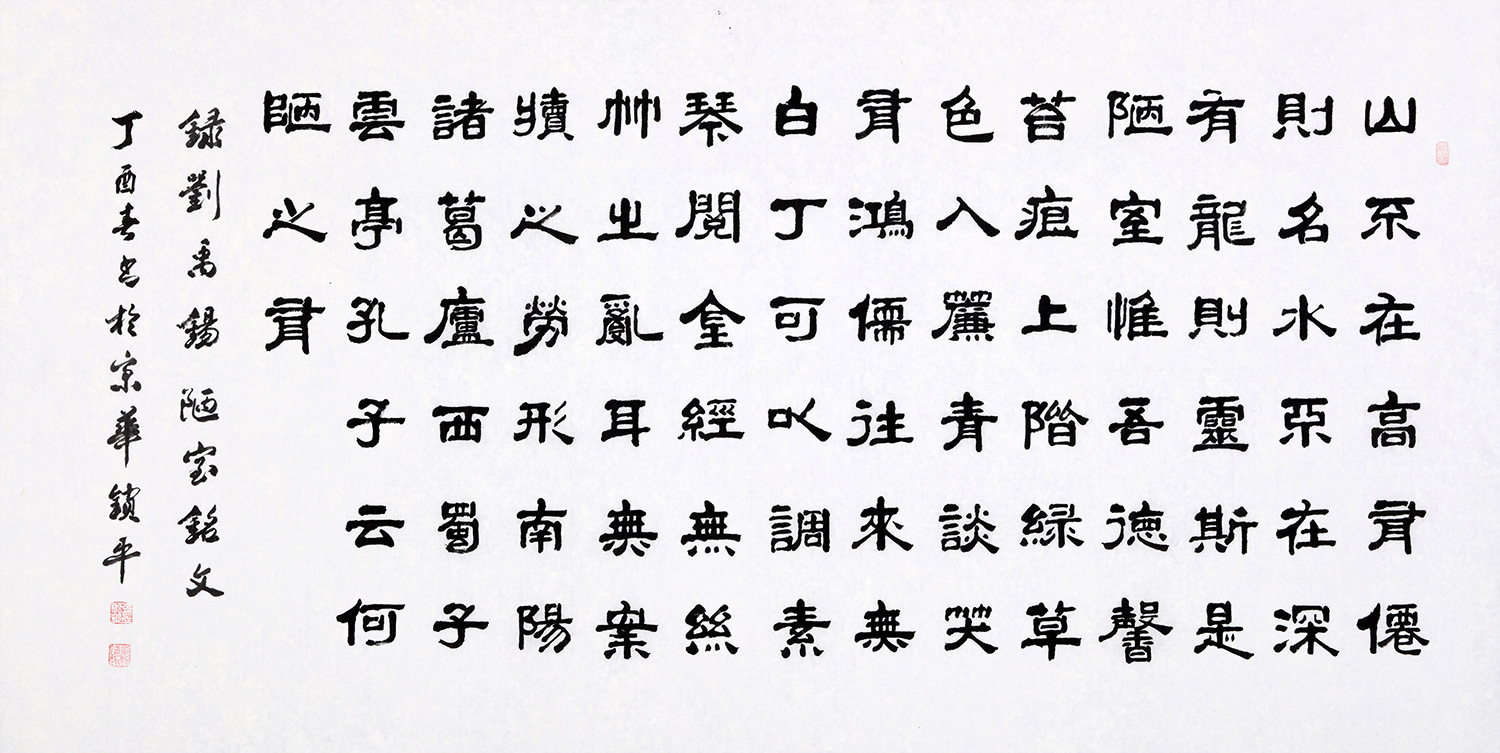 山不在高有僊
則名水不在深
有龍則靈斯是
陋室惟吾德馨
苔痕上階綠草
色入簾青談笑
有鴻儒往來無
白丁可以調素
琴閱金經無絲
竹之亂耳無案
牘之勞形南陽
諸葛廬西蜀子
雲亭孔子云何
陋之有
錄劉禹錫陋室銘文
丁酉春書於京華鎖平